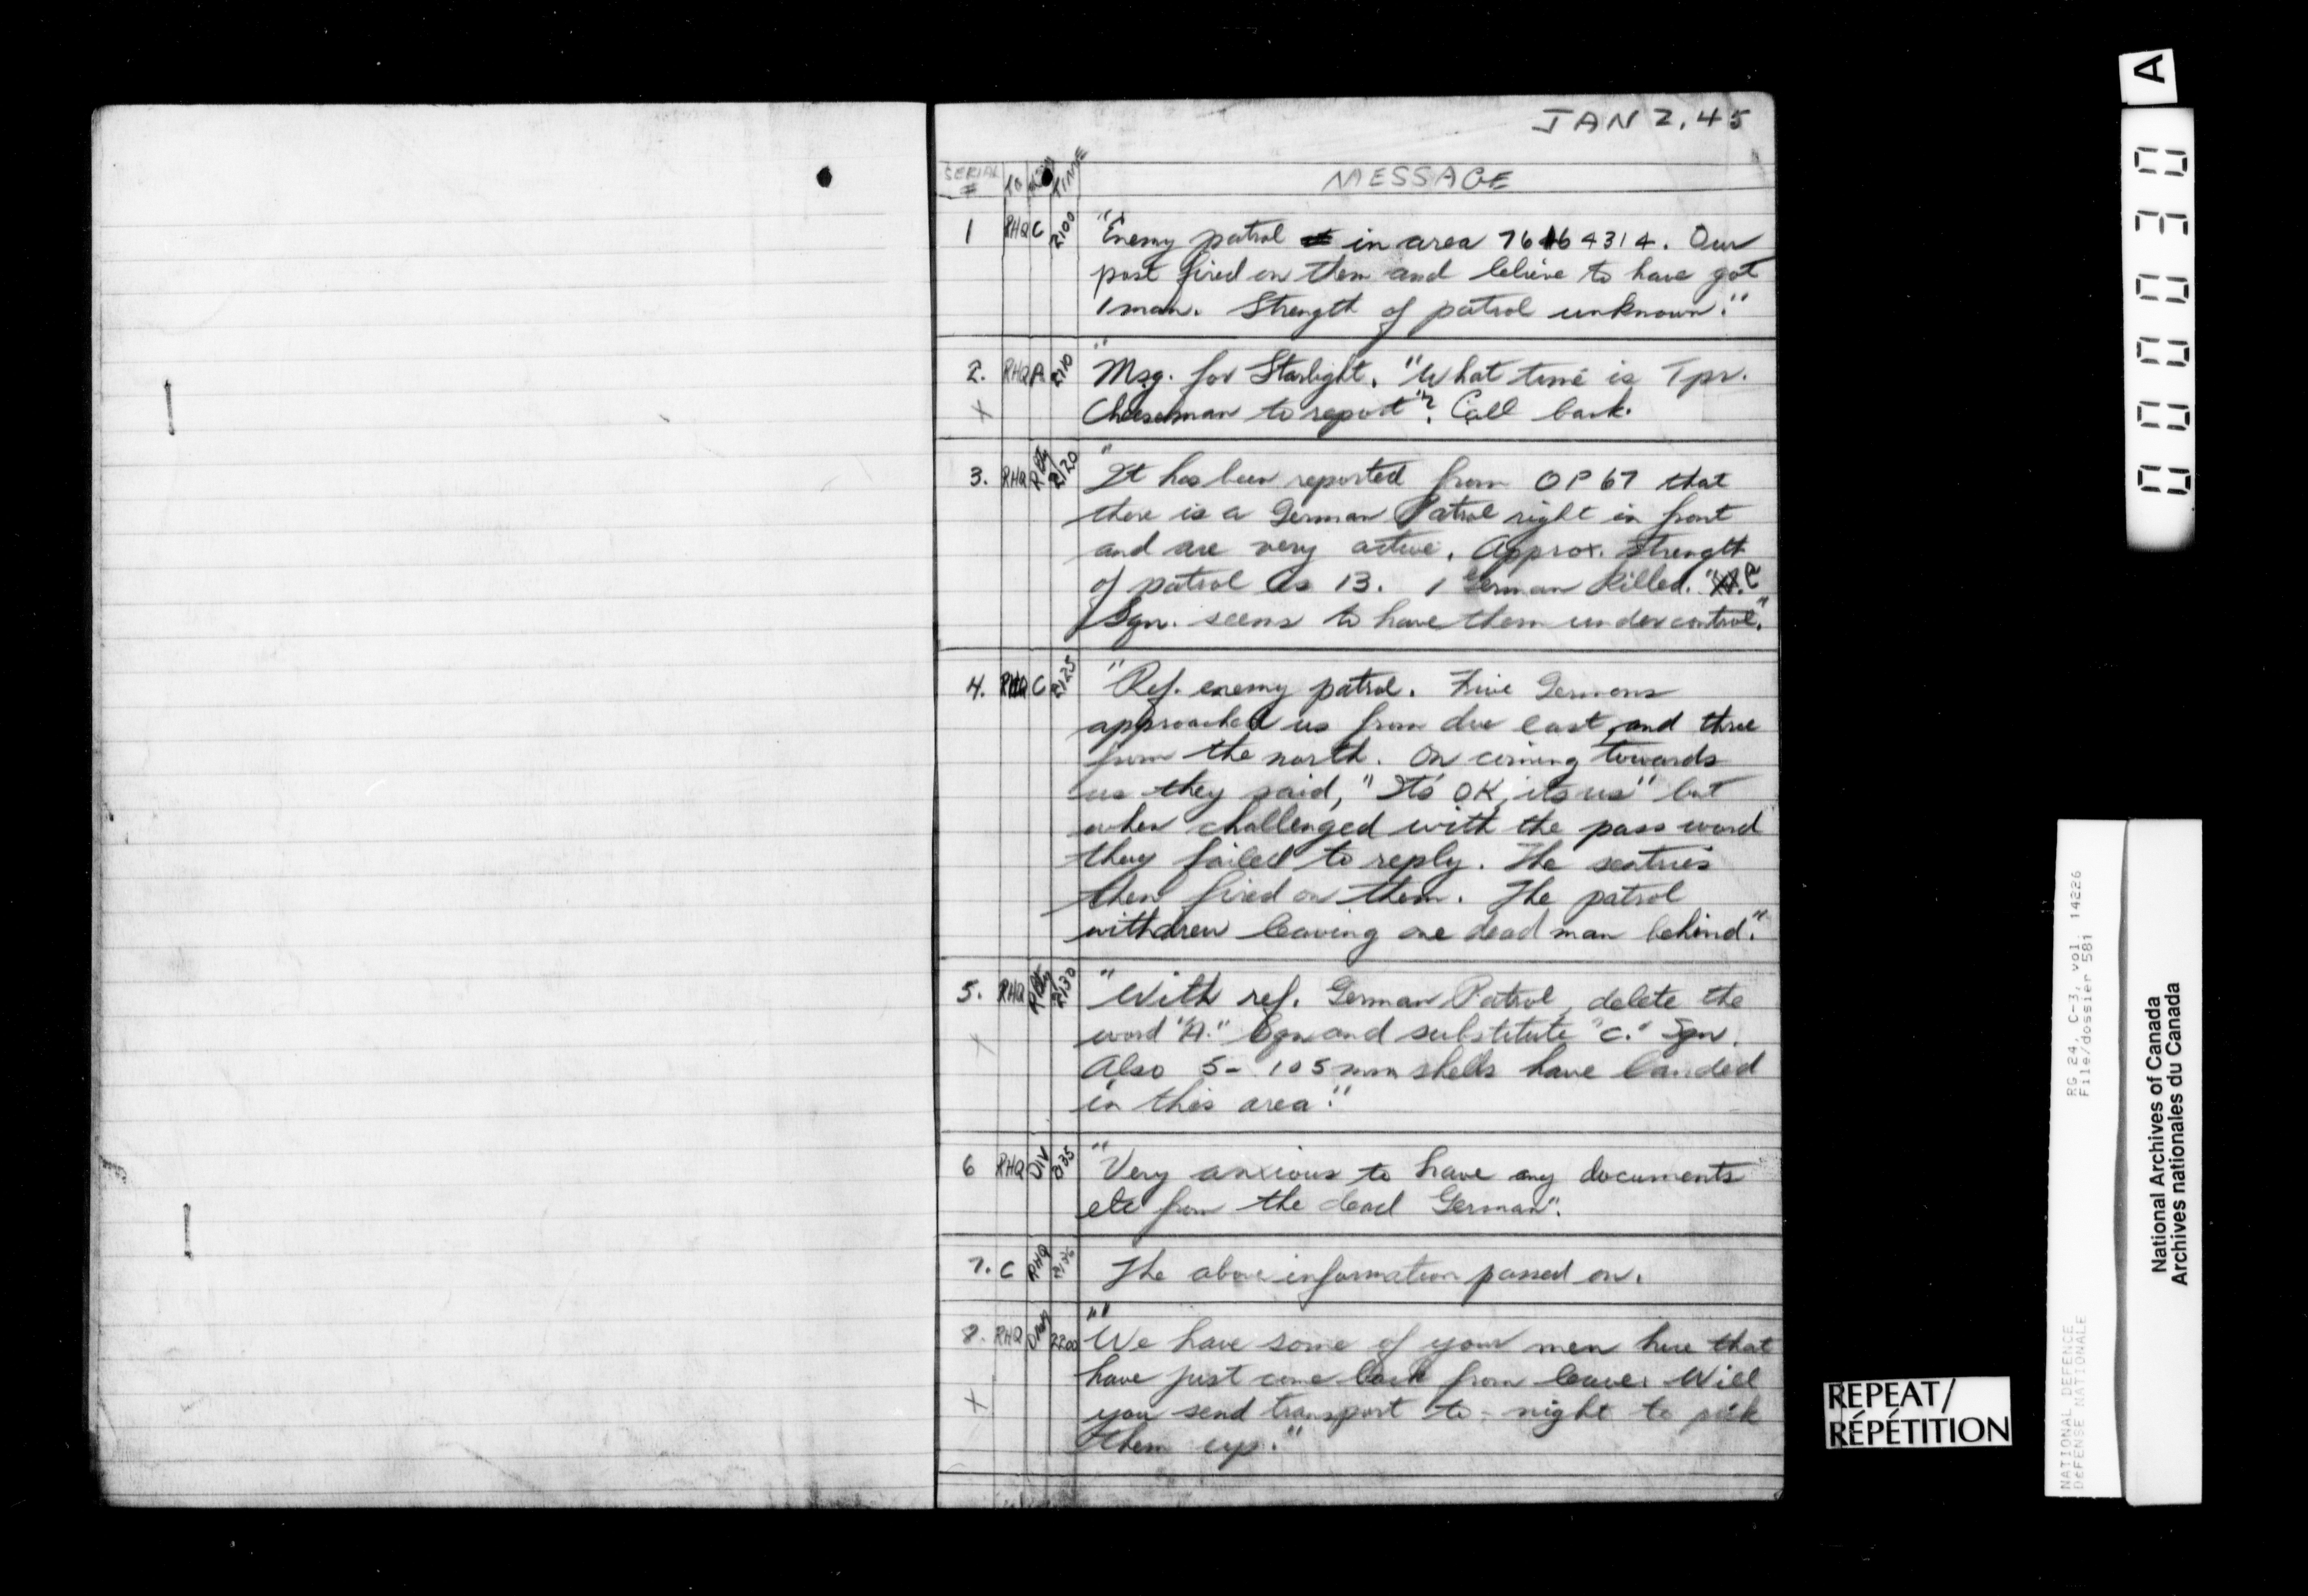 JAN 2, 45
SERIAL # TO FROM TIME MESSAGE
1 RHQ C 2100 "Enemy patrol in area 76164314. Our
post fired on them and believe to have got
1 man. Strength of patrol unknown."
2. RHQ A 2110 "Msg. for Starlight. "What time is Tpr.
X Cheeseman to report"? Call back.
3. RHQ R Bty 2120 "It has been reported from OP 67 that
there is a German Patrol right in front
and are very active. Approx. strength
of patrol is 13. 1 German killed. "C
Sqn. seems to have them under control."
4. RHQ C 2125 "Ref. enemy patrol. Five Germans
approached us from due east, and three
from the north. On coming towards
us they said, "It's OK, its us" but
when challenged with the pass word
they failed to reply. The sentries
then fired on them. The patrol
withdrew leaving one dead man behind."
5. RHQ R Bty 2130 "With ref. German Patrol, delete the
X word "A." Sqn and substitute "C." Sqn.
Also 5 - 105 mm shells have landed
in this area."
6 RHQ DIV 2135 "Very anxious to have any documents
etc from the dead German".
7. C RHQ 2136 The above information passed on.
8. RHQ 2200 ""We have some of your men here that
have just come back from leave. Will
X you send transport to-night to pick
them up."
A
000030
REPEAT/
RÉPÉTITION
RG 24, C-3, vol. 14226
File/dossier 581
NATIONAL DEFENCE
DÉFENSE NATIONALE
National Archives of Canada
Archives nationales du Canada